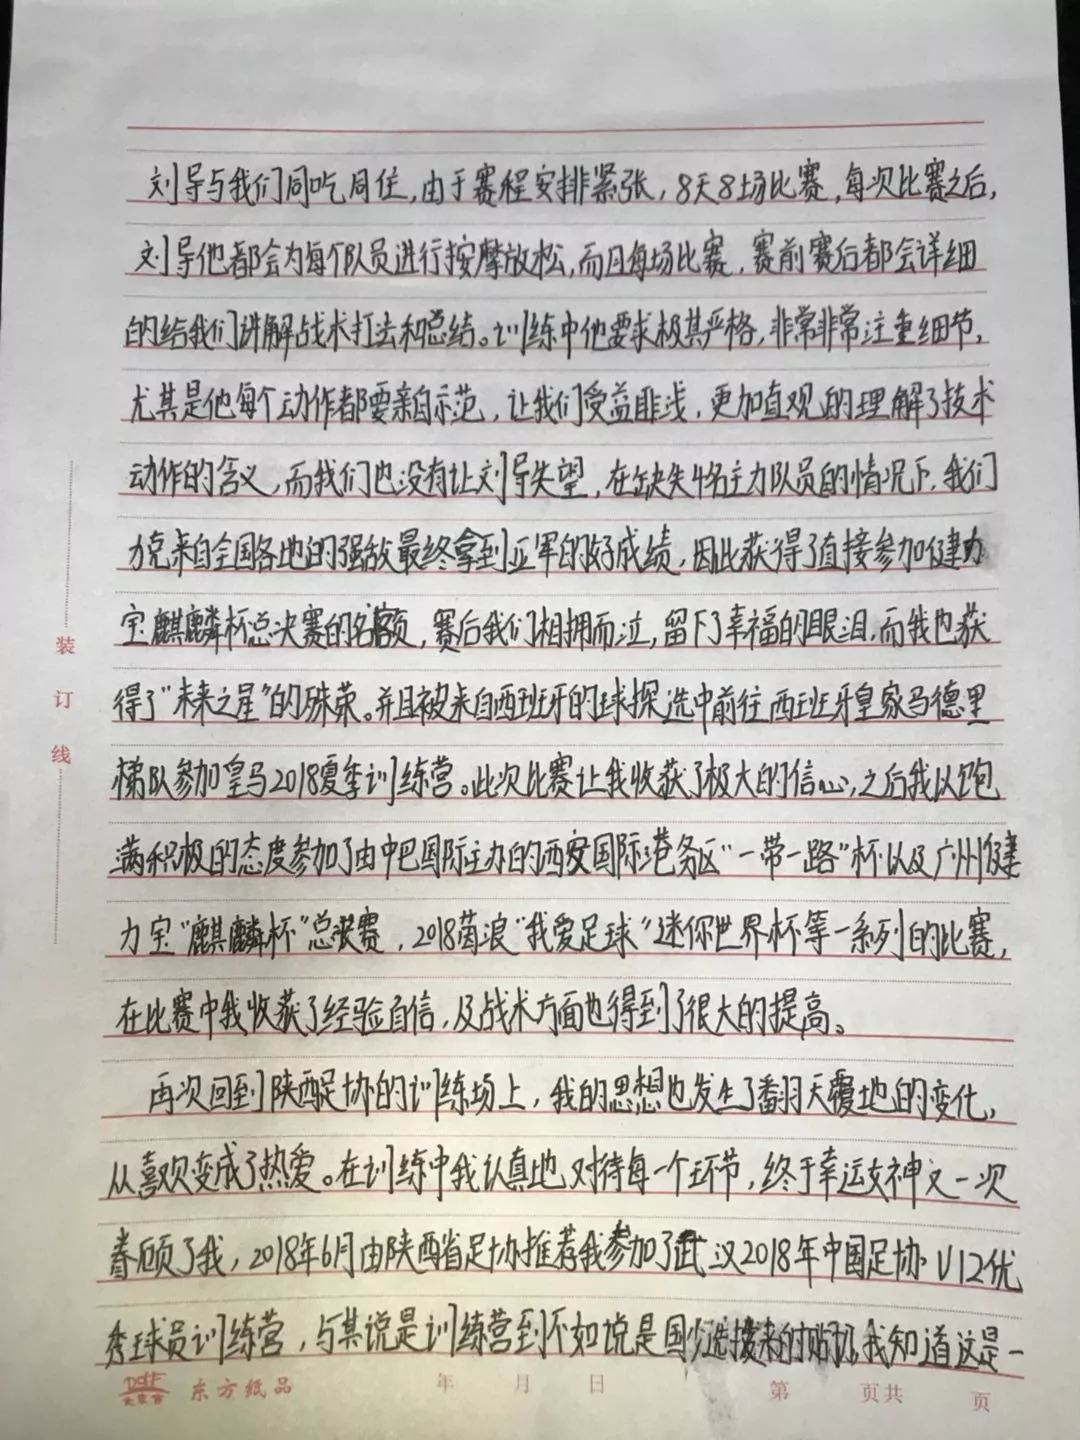 刘导与我们同吃同住,由于赛程安排紧张,8天8场比赛,每次比赛之后,
刘导他都会为每个队员进行按摩放松,而且每场比赛,赛前赛后都会详细
的给我们讲解战术打法和总结。训练中他要求极其严格,非常非常注重细节,
尤其是他每个动作都要亲自示范,让我们受益非浅,更加直观的理解了技术
动作的含义,而我们也没有让刘导失望,在缺失4名主力队员的情况下,我们
力克来自全国各地的强敌最终拿到亚军的好成绩,因此获得了直接参加健力
宝麒麟杯总决赛的名额,赛后我们相拥而泣,留下了幸福的眼泪,而我也获
得了“未来之星”的殊荣。并且被来自西班牙的球探选中前往西班牙皇家马德里
梯队参加皇马2018夏季训练营。此次比赛让我收获了极大的信心,之后我以饱
满积极的态度参加了由中巴国际主办的西安国际港务区“一带一路”杯以及广州健
力宝“麒麟杯”总决赛,2018茵浪“我爱足球”迷你世界杯等一系列的比赛,
在比赛中我收获了经验自信,及战术方面也得到了很大的提高。
再次回到陕西足协的训练场上,我的思想也发生了翻天覆地的变化,
从喜欢变成了热爱。在训练中我认真地对待每一个环节,终于幸运女神又一次
眷顾了我,2018年6月由陕西省足协推荐我参加了武汉2018年中国足协U12优
秀球员训练营,与其说是训练营到不如说是国少选拔来的 我知道这是一
装
订
线
东方纸品 年 月 日 第 页共 页